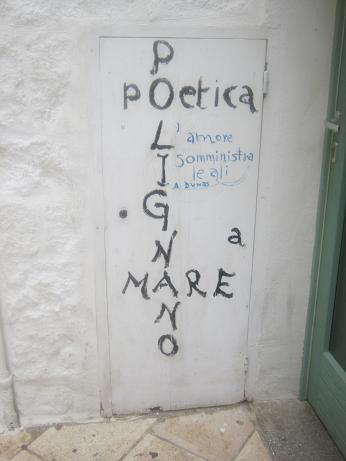 POLIGNANO
poetica
l'amore
somministra
le ali
A. Dumas
a
MARE